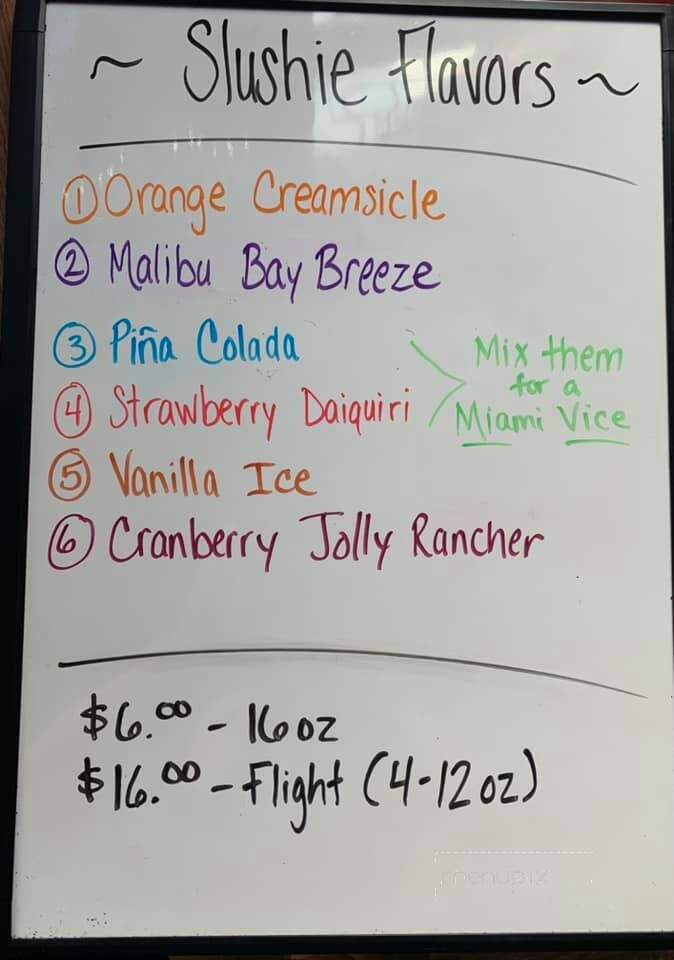 ~ Slushie Flavors ~
① Orange Creamsicle
② Malibu Bay Breeze
③ Piña Colada
④ Strawberry Daiquiri
Mix them
for a
Miami Vice
⑤ Vanilla Ice
⑥ Cranberry Jolly Rancher
$6.00 - 16oz
$16.00 - Flight (4-12oz)
menupix